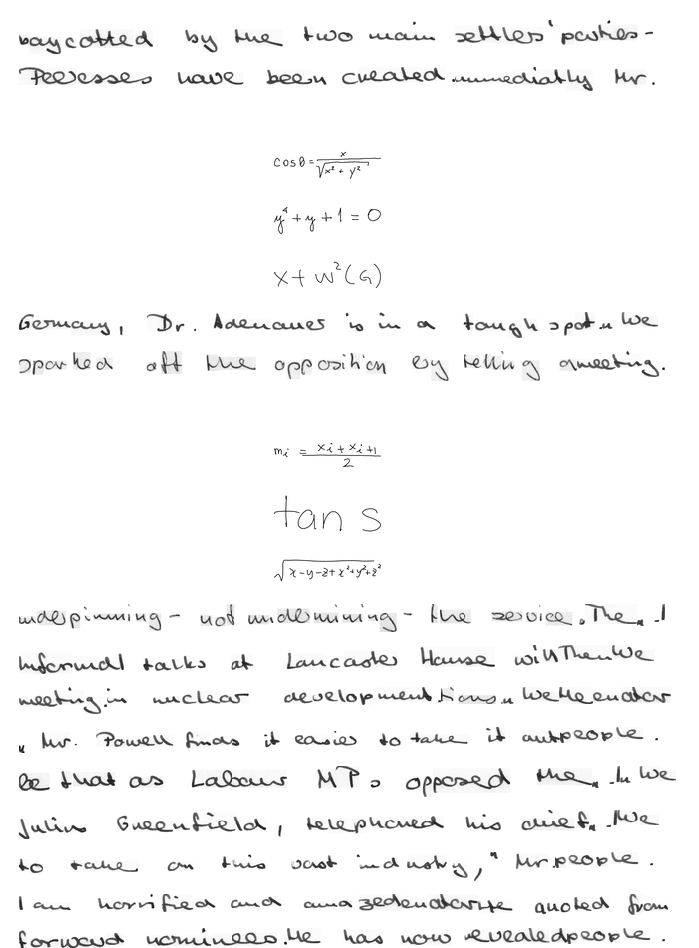 baycotted by the two main settlers' parties-
Peeresses have been created immediatly Mr.
cos θ = x / √(x² + y²)
y⁴ + y + 1 = 0
x + w²(G)
Germany, Dr. Adenauer is in a tough spot. " We
sparked off the opposition by telling a meeting.
m_i = (x_i + x_i+1) / 2
tan s
√(x-y-z+x²+y²+z²)
underpinning - not undermining - the service. The " . I
Informal talks at Lancaster House will Then We
meeting in nuclear development. tions " We
" Mr. Powell finds it easier to take it out people.
be that as Labour MPs opposed the " . In We
Julius Greenfield, telephoned his chief " . We
to take on this vast industry, " Mr. people.
I am horrified and quoted from
forward nominees. He has now revealed people.